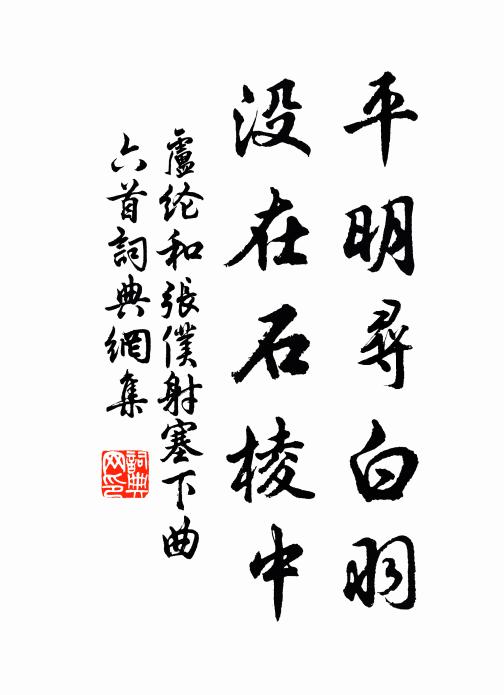 平明尋白羽
没在石棱中
盧纶和張僕射塞下曲
六首詞典網集
詞典
网印